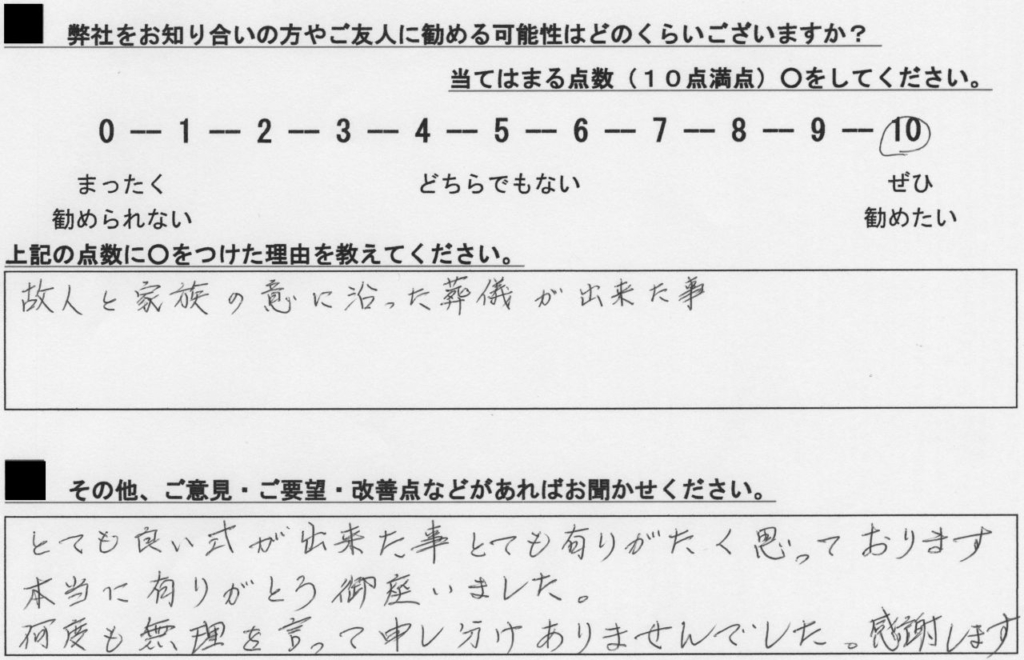 弊社をお知り合いの方やご友人に勧める可能性はどのくらいございますか？
当てはまる点数（１０点満点）〇をしてください。
0 ―― 1 ―― 2 ―― 3 ―― 4 ―― 5 ―― 6 ―― 7 ―― 8 ―― 9 ―― 10
まったく どちらでもない ぜひ
勧められない 勧めたい
上記の点数に〇をつけた理由を教えてください。
故人と家族の意に沿った葬儀が出来た事
その他、ご意見・ご要望・改善点などがあればお聞かせください。
とても良い式が出来た事とても有りがたく思っております
本当に有りがとう御座いました。
何度も無理を言って申し分けありませんでした。感謝します